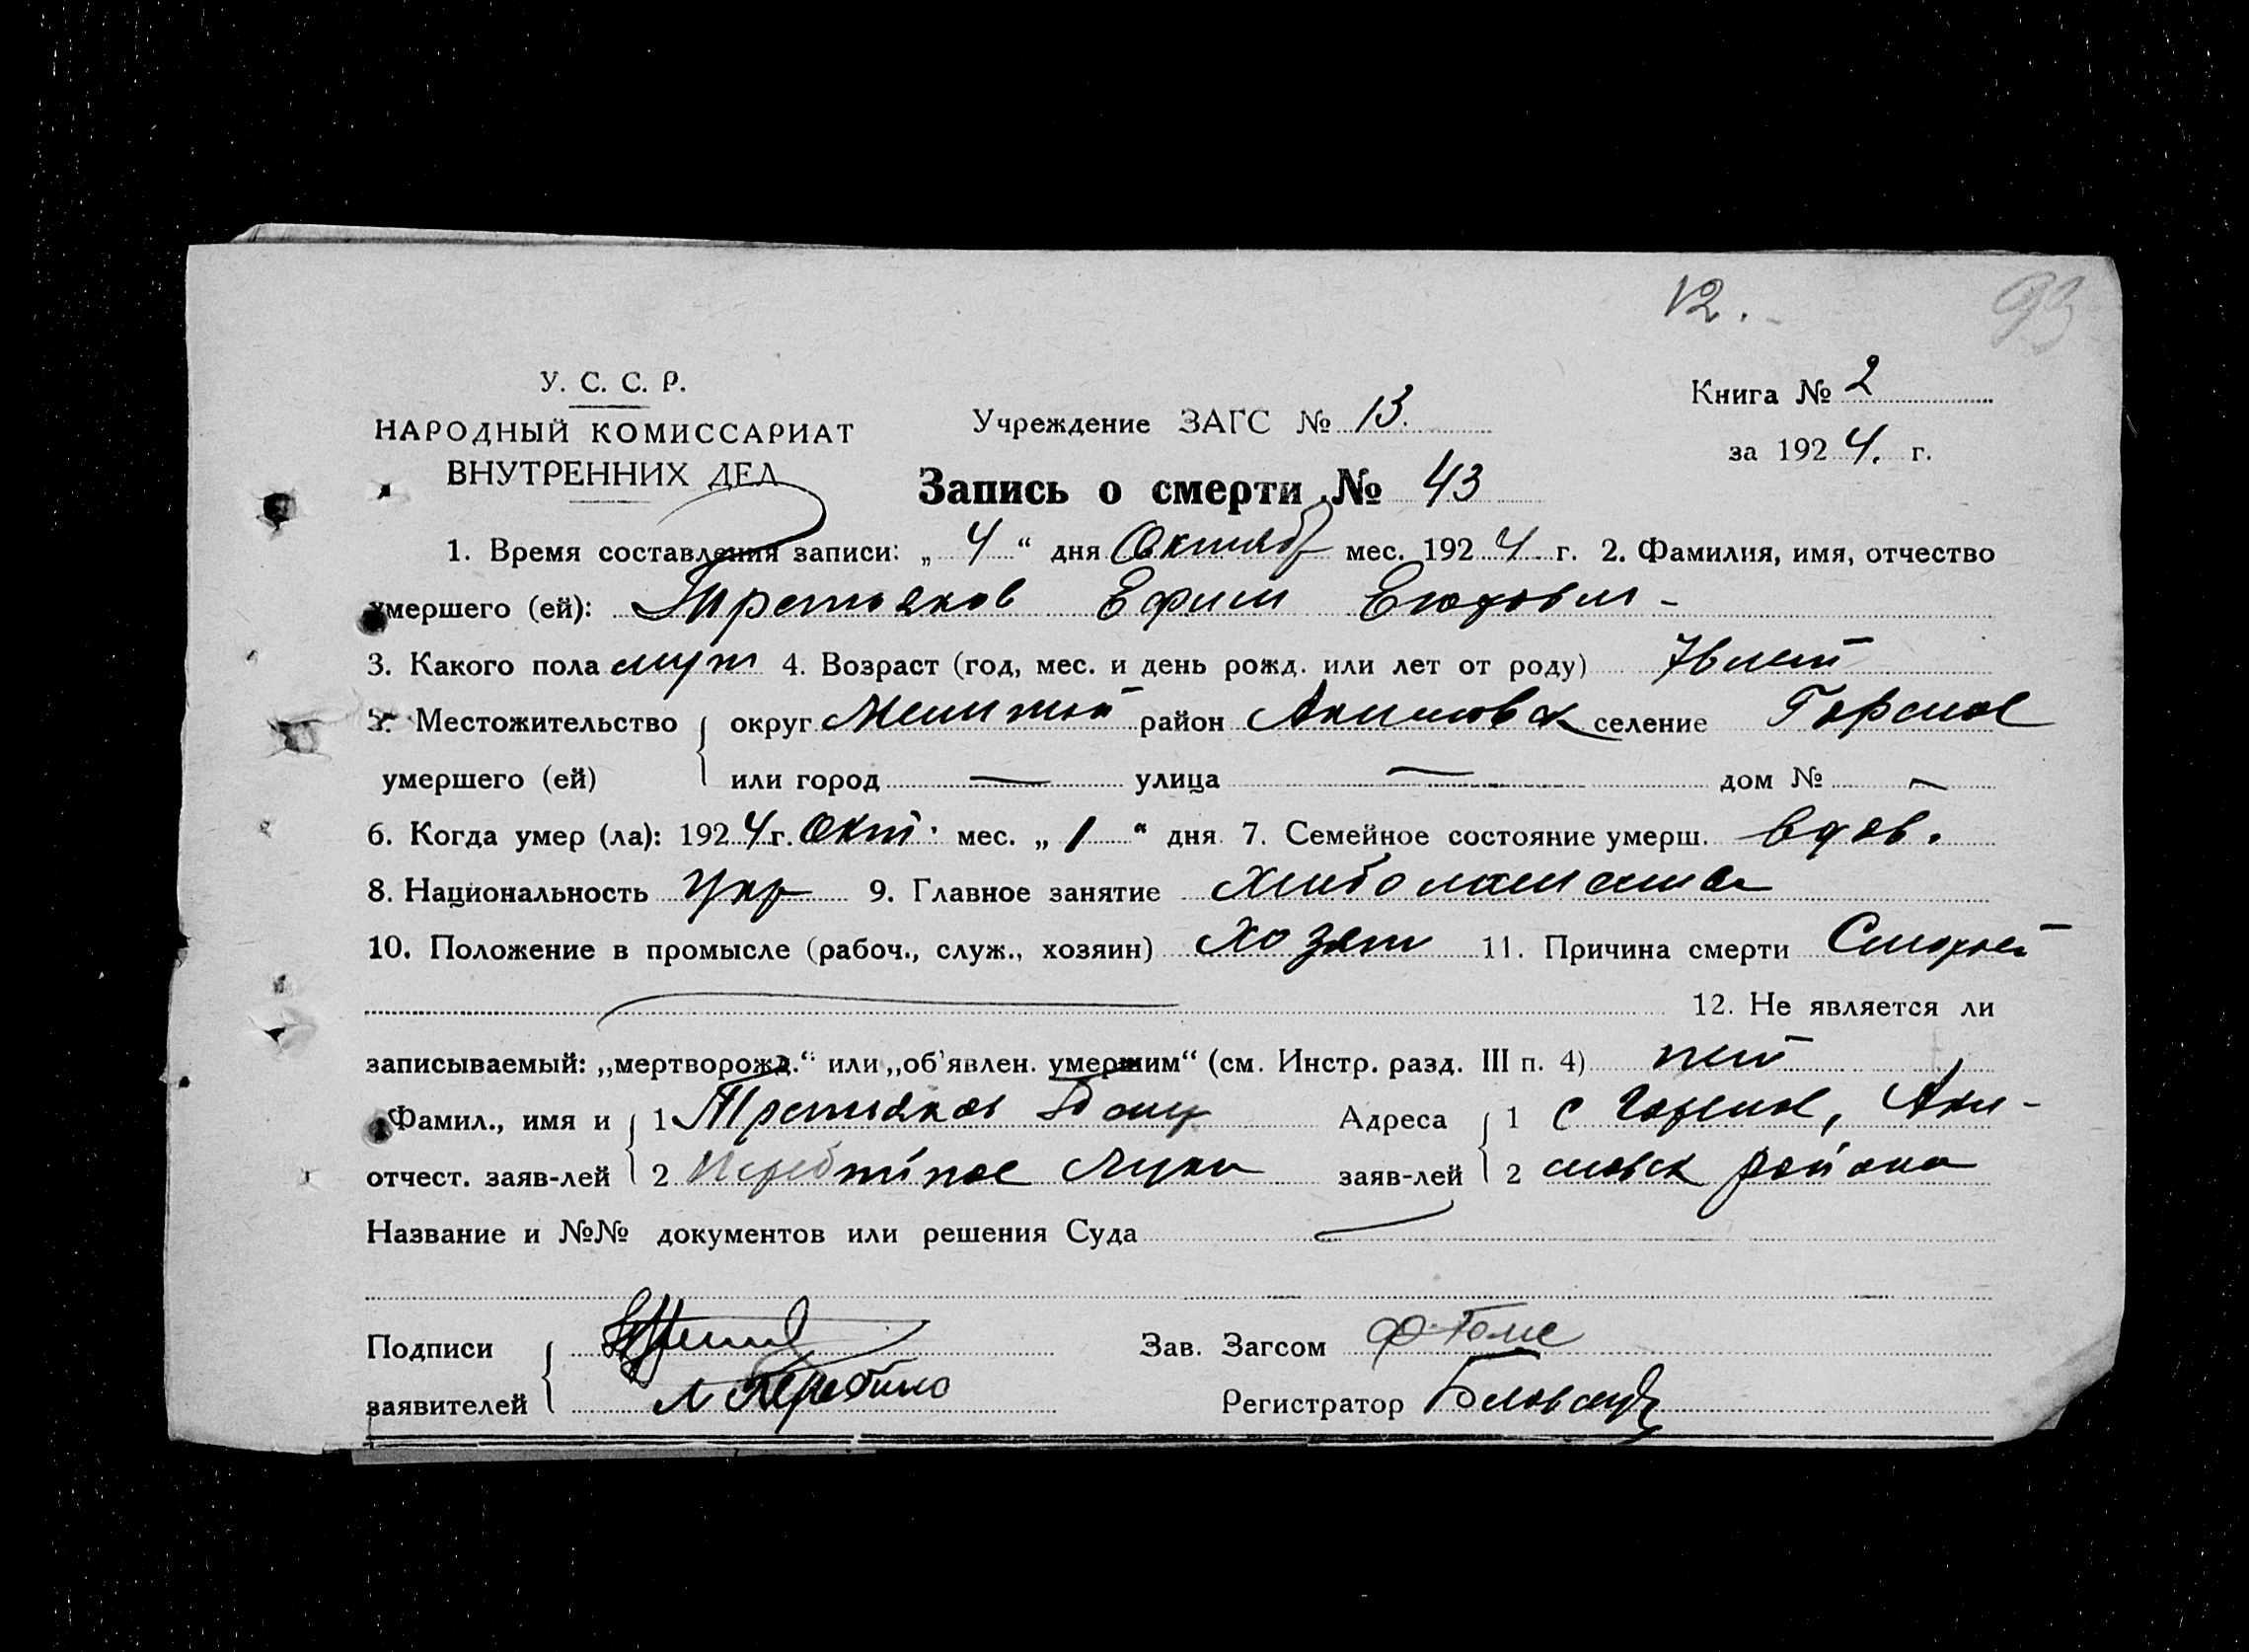 12. 93
У. С. С. Р.
НАРОДНЫЙ КОМИССАРИАТ
ВНУТРЕННИХ ДЕЛ
Учреждение ЗАГС № 13.
Книга № 2
за 1924. г.
Запись о смерти № 43
1. Время составления записи: „ 4 “ дня Октяб мес. 1924 г. 2. Фамилия, имя, отчество
умершего (ей): Третьяков Ефим
3. Какого пола муж 4. Возраст (год, мес. и день рожд. или лет от роду) 76 лет
5. Местожительство округ Мелитоп район Акимовск селение Горелое
умершего (ей) или город — улица — дом № —
6. Когда умер (ла): 1924 г. Окт. мес. „ 1 “ дня 7. Семейное состояние умерш. вдов.
8. Национальность укр 9. Главное занятие хлебопашество
10. Положение в промысле (рабоч., служ., хозяин) хозяин 11. Причина смерти
12. Не является ли
записываемый: „мертворожд.“ или „об'явлен. умершим“ (см. Инстр. разд. III п. 4) нет
Фамил., имя и 1 Третьяков Адреса 1 с Горелое, Аки-
отчест. заяв-лей 2 Лука заяв-лей 2 мовск района
Название и №№ документов или решения Суда
Подписи Зав. Загсом
заявителей Регистратор